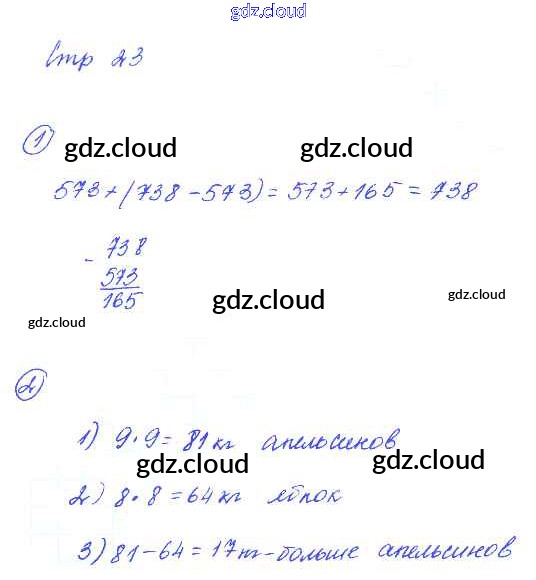 gdz.cloud
Стр 23
1
gdz.cloud gdz.cloud
573+(738-573)=573+165=738
- 738
573
165
gdz.cloud gdz.cloud
gdz.cloud
2
1) 9·9=81кг апельсинов
gdz.cloud gdz.cloud
2) 8·8=64кг яблок
3) 81-64=17кг-больше апельсинов